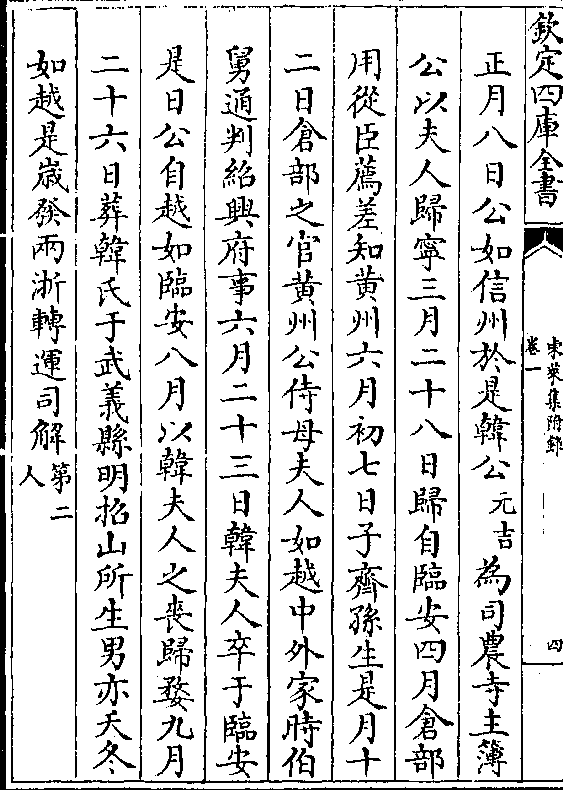 欽定四庫全書
東萊集附錄
卷一
四
正月八日公如信州於是韓公元吉為司農寺主簿
公以夫人歸寧三月二十八日歸自臨安四月倉部
用從臣薦差知黄州六月初七日子齊孫生是月十
二日倉部之官黄州公侍母夫人如越中外家時伯
舅通判紹興府事六月二十三日韓夫人卒于臨安
是日公自越如臨安八月以韓夫人之喪歸婺九月
二十六日葬韓氏于武義縣明招山所生男亦夭冬
如越是歲發兩浙轉運司解第二人